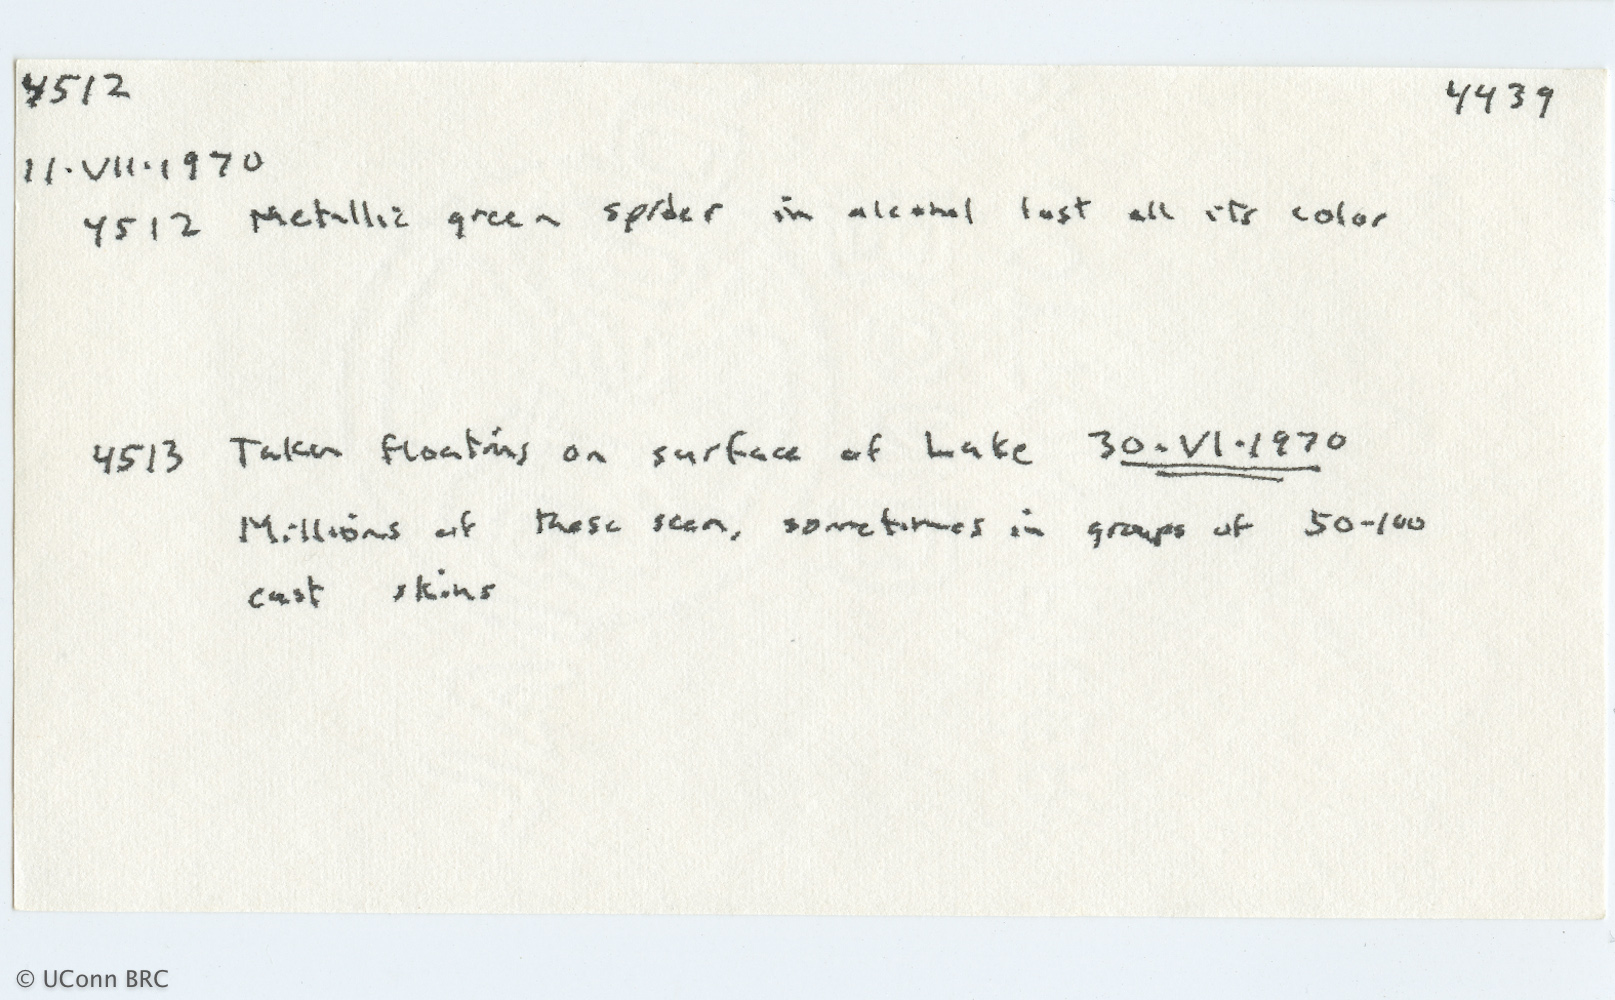 4512 4439
11.VII.1970
4512 Metallic green spider in alcohol lost all its color
4513 Taken floating on surface of Lake 30.VI.1970
Millions of these seen, sometimes in groups of 50-100
cast skins
© UConn BRC